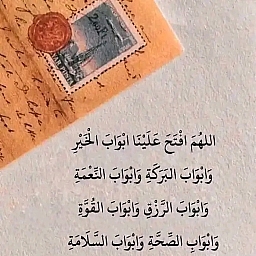 اللهُمَ افْتَحَ عَلَيْنَا ابْوَابَ الْخَيْرِ
وَابْوَابَ البَرَكَةِ وَابْوَابَ النِّعْمَةِ
وَابْوَابَ الرَّزْقِ وَابْوَابَ القُوَّةِ
وَابْوَابِ الصِّحَّةِ وَابْوَابَ السَّلَامَةِ